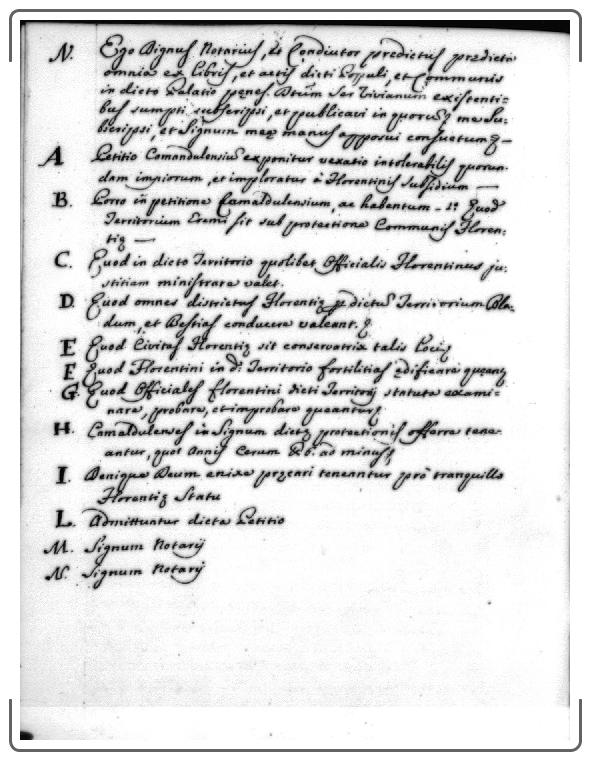 N. Ego Dignus Notarius, et Condiutor predictus prædicta
omnia ex libris, et actis dicti Populi, et Communis
in dicto Palatio penes Dnum Ser Vivianum existenti=
bus sumpti subscripsi, et publicavi in quorum me Su=
bscripsi, et Signum meæ manus apposui consuetum
A Petitio Camandulensium exponitur vexatio intolerabilis quorun-
dam impiorum, et imploratur à Florentinis Subsidium —
B. Porro in petitione Camaldulensium, ac habentum - 1º Quod
Territorium Eremi sit sub protectione Communis Floren=
tiæ —
C. Quod in dicto Territorio quolibet Officialis Florentinus ju=
stitiam ministrare valet.
D. Quod omnes districtus Florentiæ p dictum Territorium Bla=
dum, et Bestias conducere valeant.
E Quod Civitas Florentiæ sit conservatrix talis Loci
F Quod Florentini in dº Territorio fortilitias ędificare queant
G. Quod Officiales florentini dicti Territorij statuta exami=
nare, probare, et improbare queantur
H. Camaldulenses in Signum dictæ protectionis offerre tene=
antur, quot Annis Cerum ad minus
I. Benigne Deum enixe pręcari teneantur prò tranquillo
Florentiæ Statu
L. Admittuntur dicta Petitio
M. Signum Notarij
N. Signum Notarij